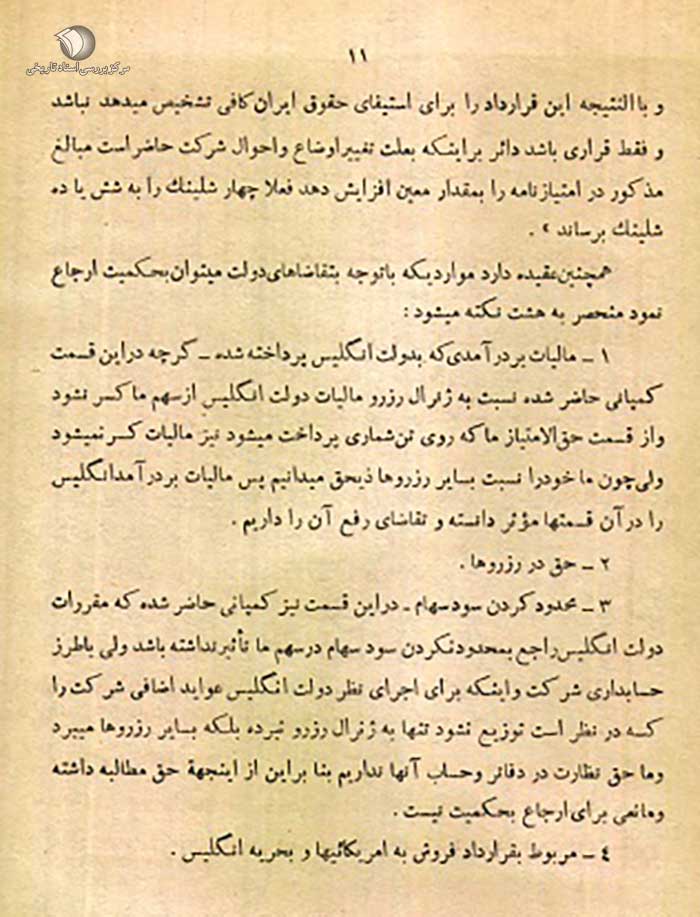 مرکز بررسی اسناد تاریخی
۱۱
و باالنتیجه این قرارداد را برای استیفای حقوق ایران کافی تشخیص میدهد نباشد
و فقط قراری باشد دائر براینکه بعلت تغییر اوضاع و احوال شرکت حاضر است مبالغ
مذکور در امتیازنامه را بمقدار معین افزایش دهد فعلا چهار شلینك را به شش یا ده
شلینك برساند » .
همچنین عقیده دارد مواردیکه باتوجه بتقاضاهای دولت میتوان بحکمیت ارجاع
نمود منحصر به هشت نکته میشود :
۱ ــ مالیات بردرآمدی که بدولت انگلیس پرداخته شده ــ گرچه دراین قسمت
کمپانی حاضر شده نسبت به ژنرال رزرو مالیات دولت انگلیس از سهم ما کسر نشود
و از قسمت حق‌الامتیاز ما که روی تن‌شماری پرداخت میشود نیز مالیات کسر نمیشود
ولی چون ما خودرا نسبت بسایر رزروها ذیحق میدانیم پس مالیات بردرآمد انگلیس
را در آن قسمتها مؤثر دانسته و تقاضای رفع آن را داریم .
۲ ــ حق در رزروها .
۳ ــ محدود کردن سود سهام ــ دراین قسمت نیز کمپانی حاضر شده که مقررات
دولت انگلیس راجع بمحدودنکردن سود سهام درسهم ما تأثیر نداشته باشد ولی باطرز
حسابداری شرکت و اینکه برای اجرای نظر دولت انگلیس عواید اضافی شرکت را
کسه در نظر است توزیع نشود تنها به ژنرال رزرو نبرده بلکه بسایر رزروها میبرد
و ما حق نظارت در دفاتر و حساب آنها نداریم بنا براین از اینجهة حق مطالبه داشته
و مانعی برای ارجاع بحکمیت نیست .
٤ ــ مربوط بقرارداد فروش به امریکائیها و بحریه انگلیس .